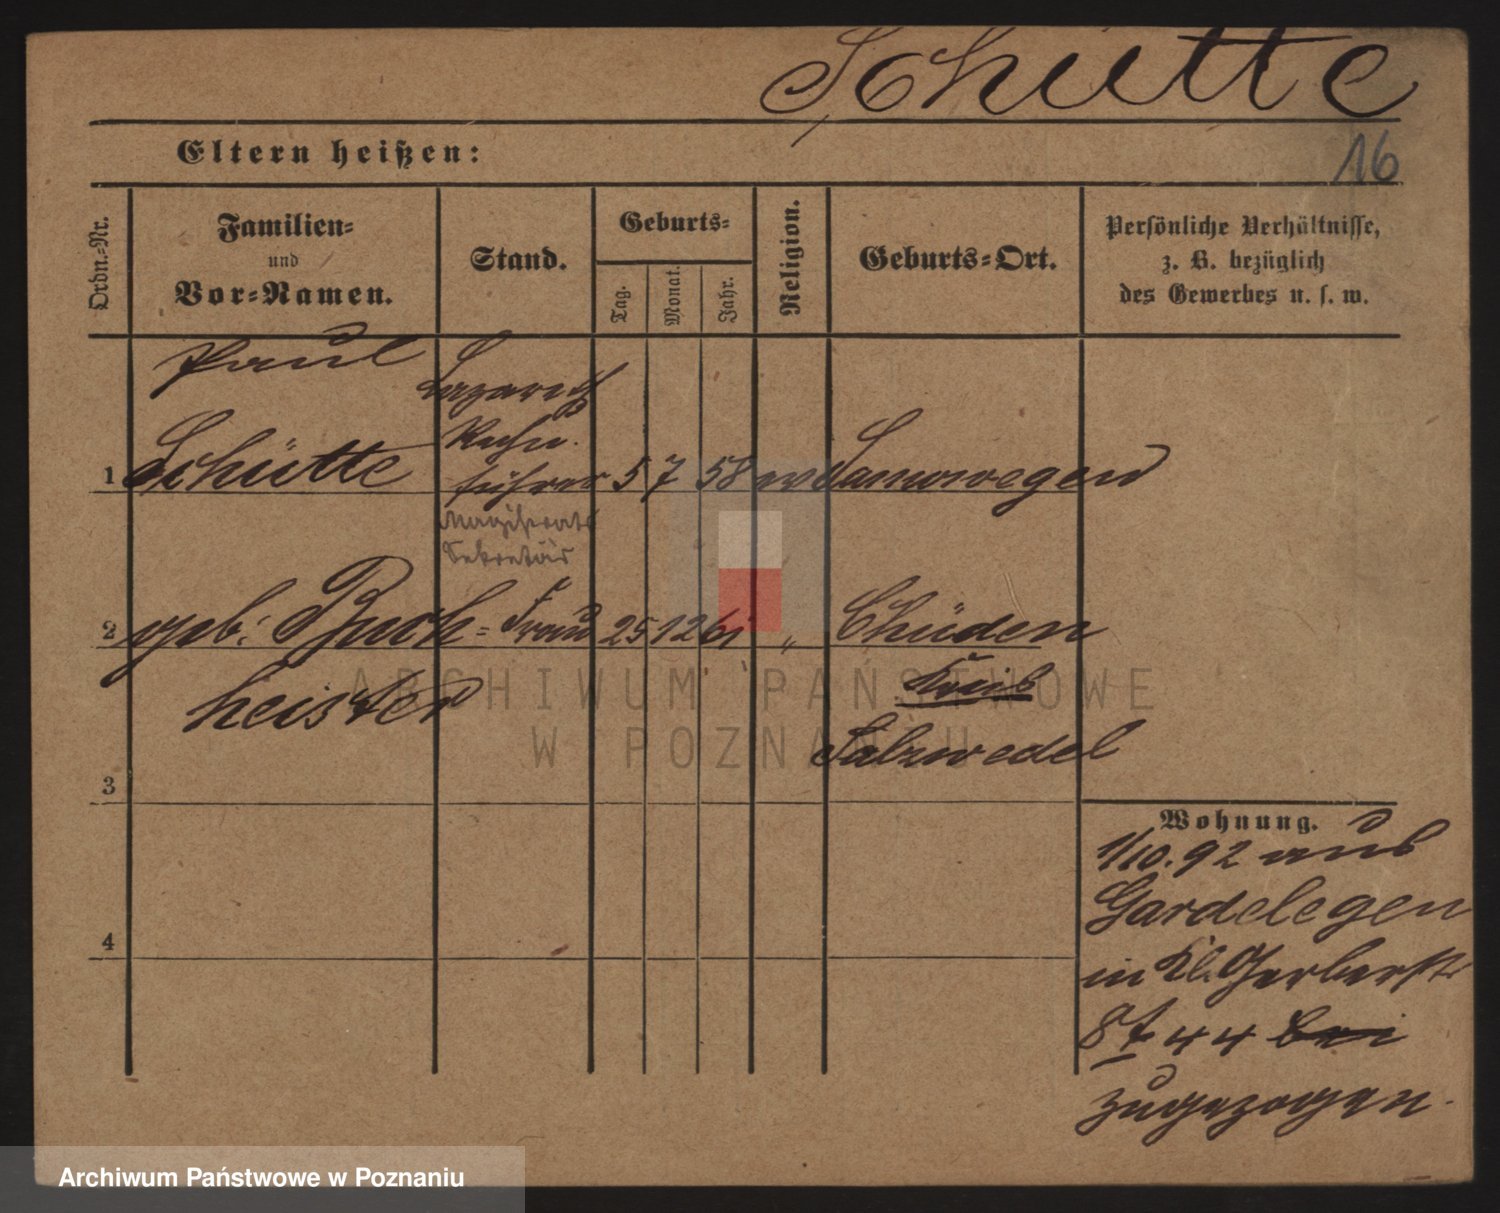 Schütte
16
Eltern heißen:
Ordn.-Nr.
Familien-
und
Vor-Namen.
Stand.
Geburts-
Tag.
Monat.
Jahr.
Religion.
Geburts-Ort.
Persönliche Verhältnisse,
z. B. bezüglich
des Gewerbes u. s. w.
Paul
Lazareth
Rechn.
1 Schütte führer 5 7 58 ev
Magistrats
Sekretär
2 geb: Buch= Frau 25 12 61 " Chüden
heister Kreis
Salzwedel
3
Wohnung.
1/10. 92 aus
Gardelegen
in Kl. Gerberstr
8 44 bei
zugezogen.
4
ARCHIWUM PAŃSTWOWE
W POZNANIU
Archiwum Państwowe w Poznaniu